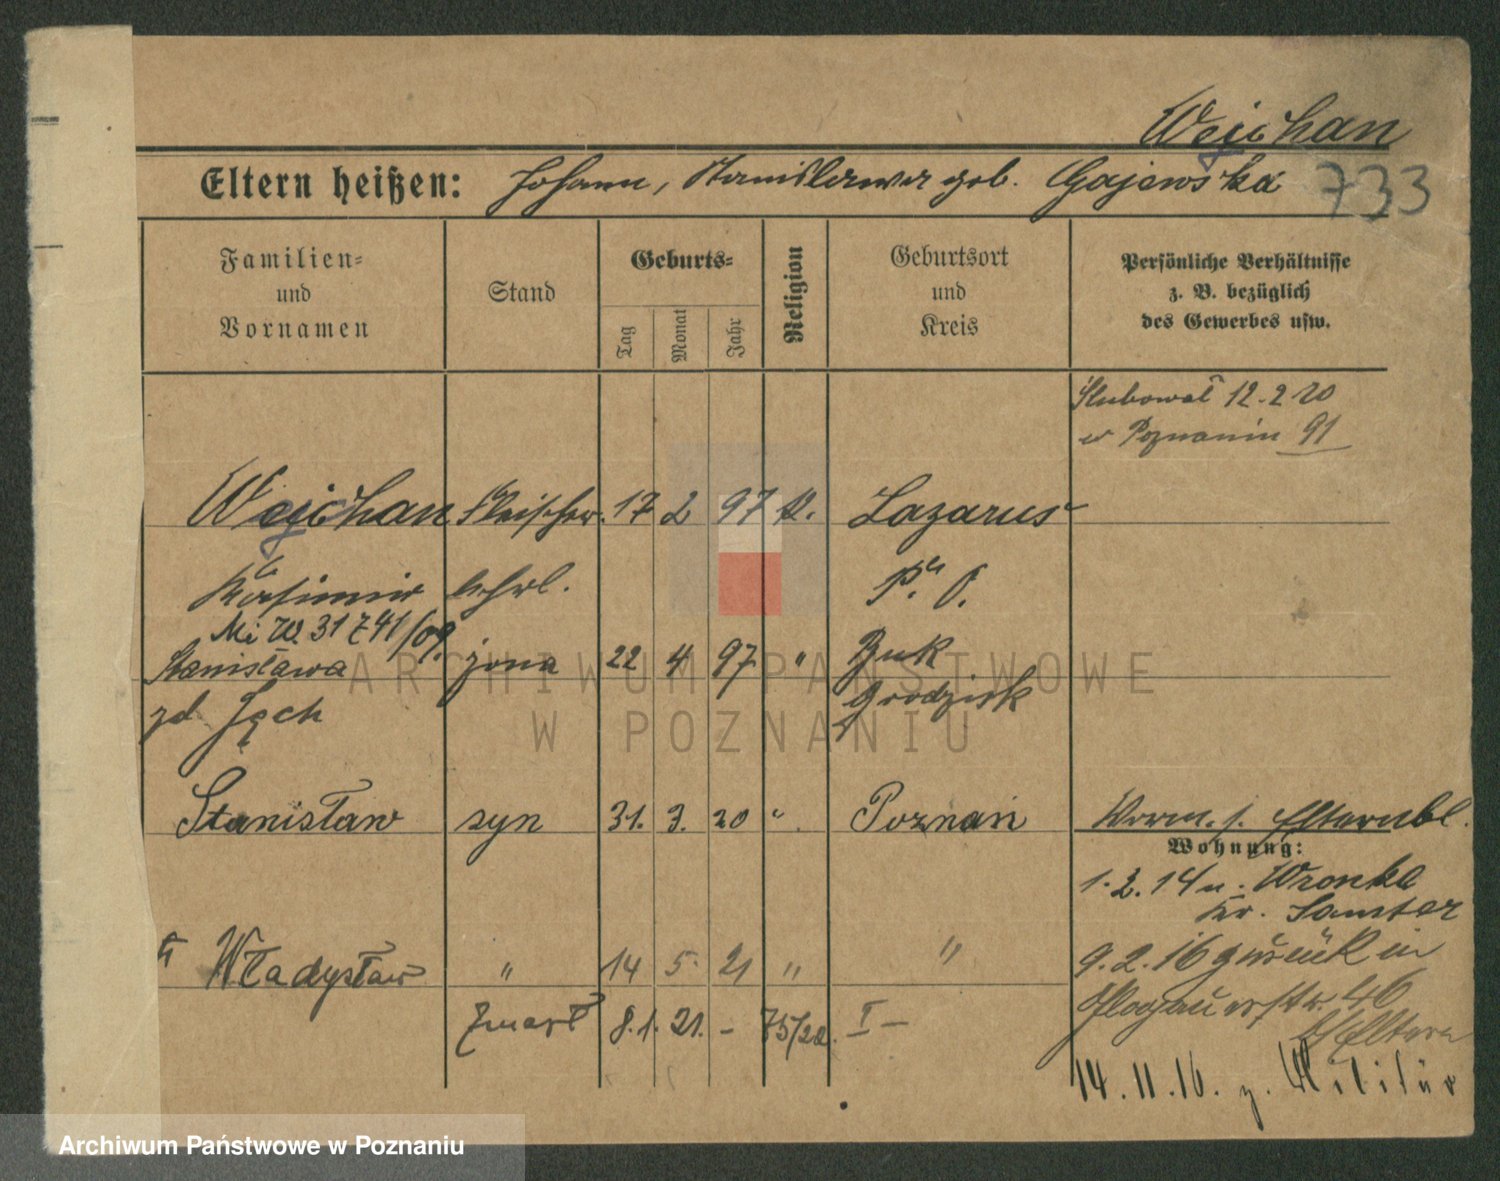 Wejchan
Eltern heißen: Johann, Stanislawa geb. Gajewska 733
Familien- und Vornamen
Stand
Geburts-
Tag
Monat
Jahr
Religion
Geburtsort und Kreis
Persönliche Verhältnisse z. B. bezüglich des Gewerbes usw.
Slubował 12.2 20
w Poznaniu 91
Wejchan Fleischer 17 2 97 k. Lazarus
Kasimir lehrl. P. O.
Mi W. 31741/09.
Stanisława żona 22 4 97 " Buk
zd. Jęch Grodzisk
Stanisław syn 31. 3. 20 " Poznań
Worm. s. Elternbl.
Wohnung:
1.2.14 n. Wronke
Kr. Samter
† Władysław " 14 5 21 " "
9.2.16 zurück in
Glogauerstr. 46
Eltern
zmarł 8.1. 21. – 75/22. I –
14.11.16. z. Militär
ARCHIWUM PAŃSTWOWE
W POZNANIU
Archiwum Państwowe w Poznaniu